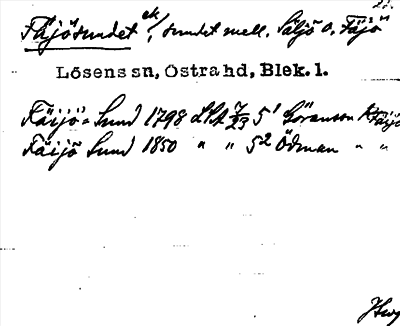 Fäjösundet ek/, sundet mell. Säljö o. Fäjö
Lösens sn, Östra hd, Blek. l.
Fäijö-Sund 1798 LSA 7/23 5¹ Göransson k Fäijö
Fäijö Sund 1850 " " 5² Ödman " "